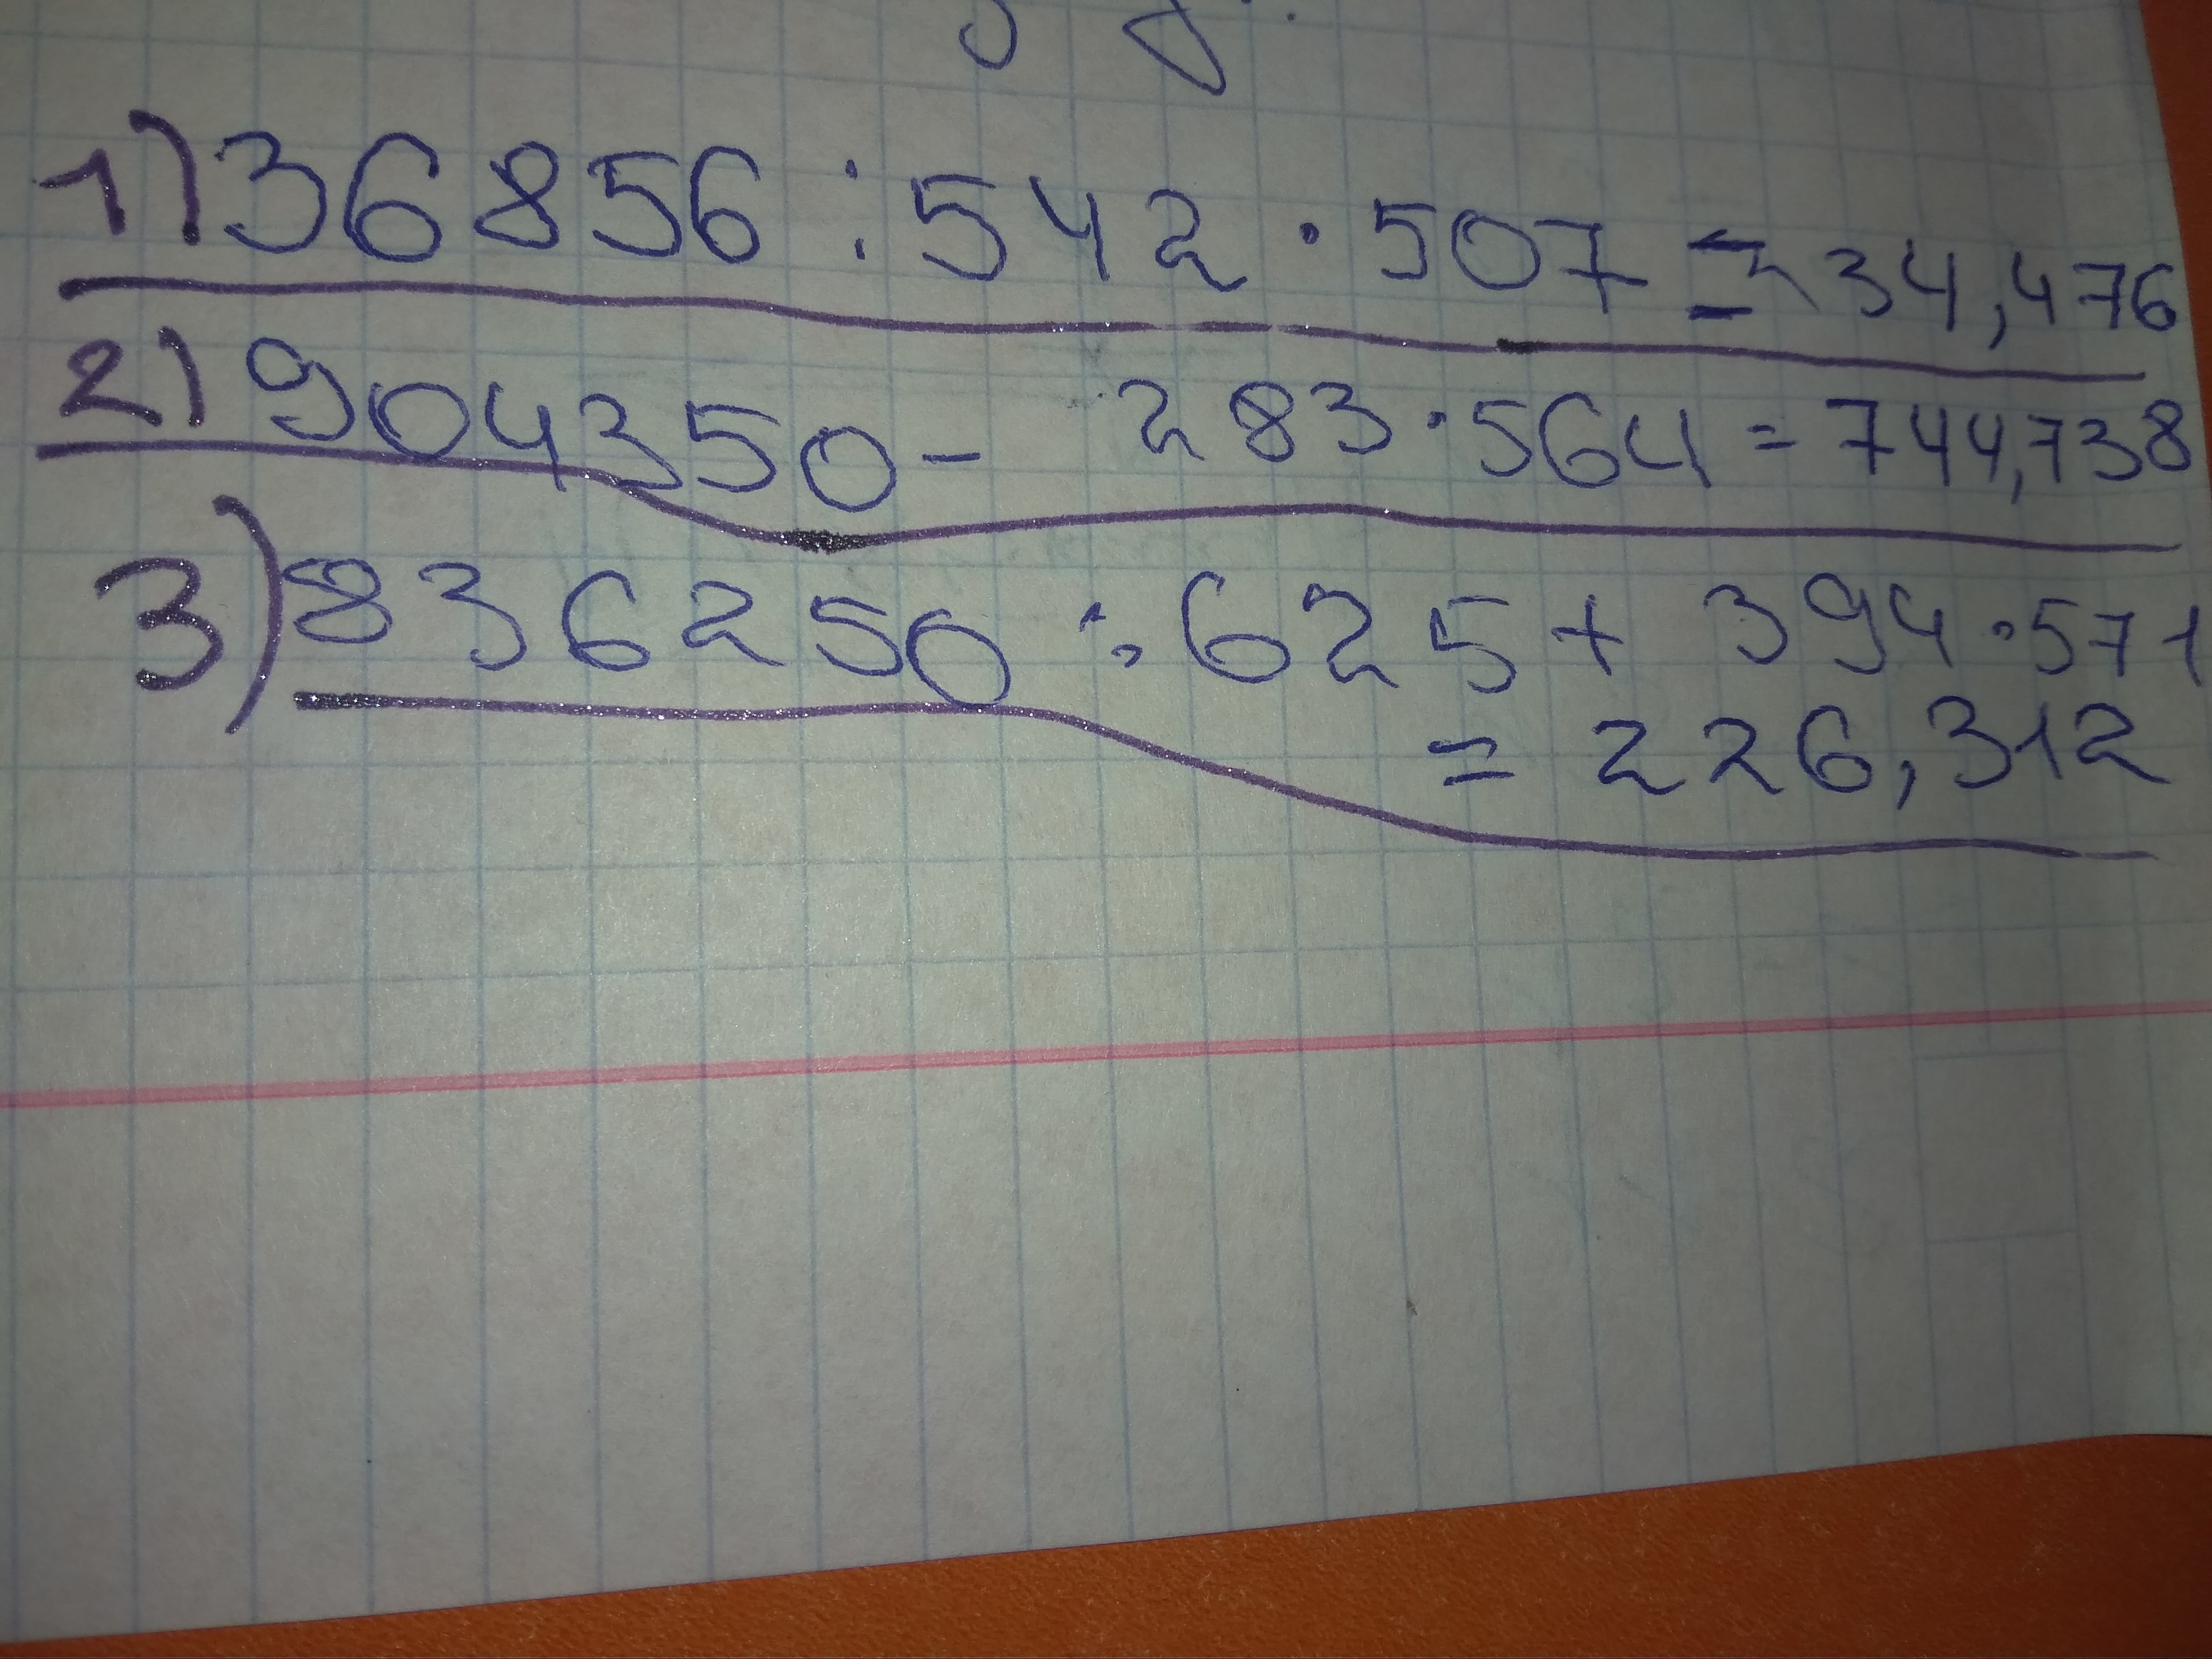 1) 36856 : 542 · 507 = 34,476
2) 904350 - 283 · 564 = 744,738
3) 836250 : 625 + 394 · 571
= 226,312